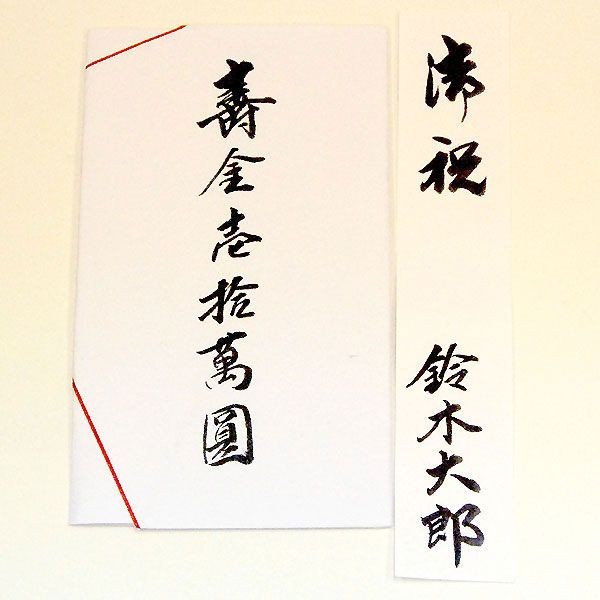 御祝
鈴木大郎
壽金壱拾萬圓